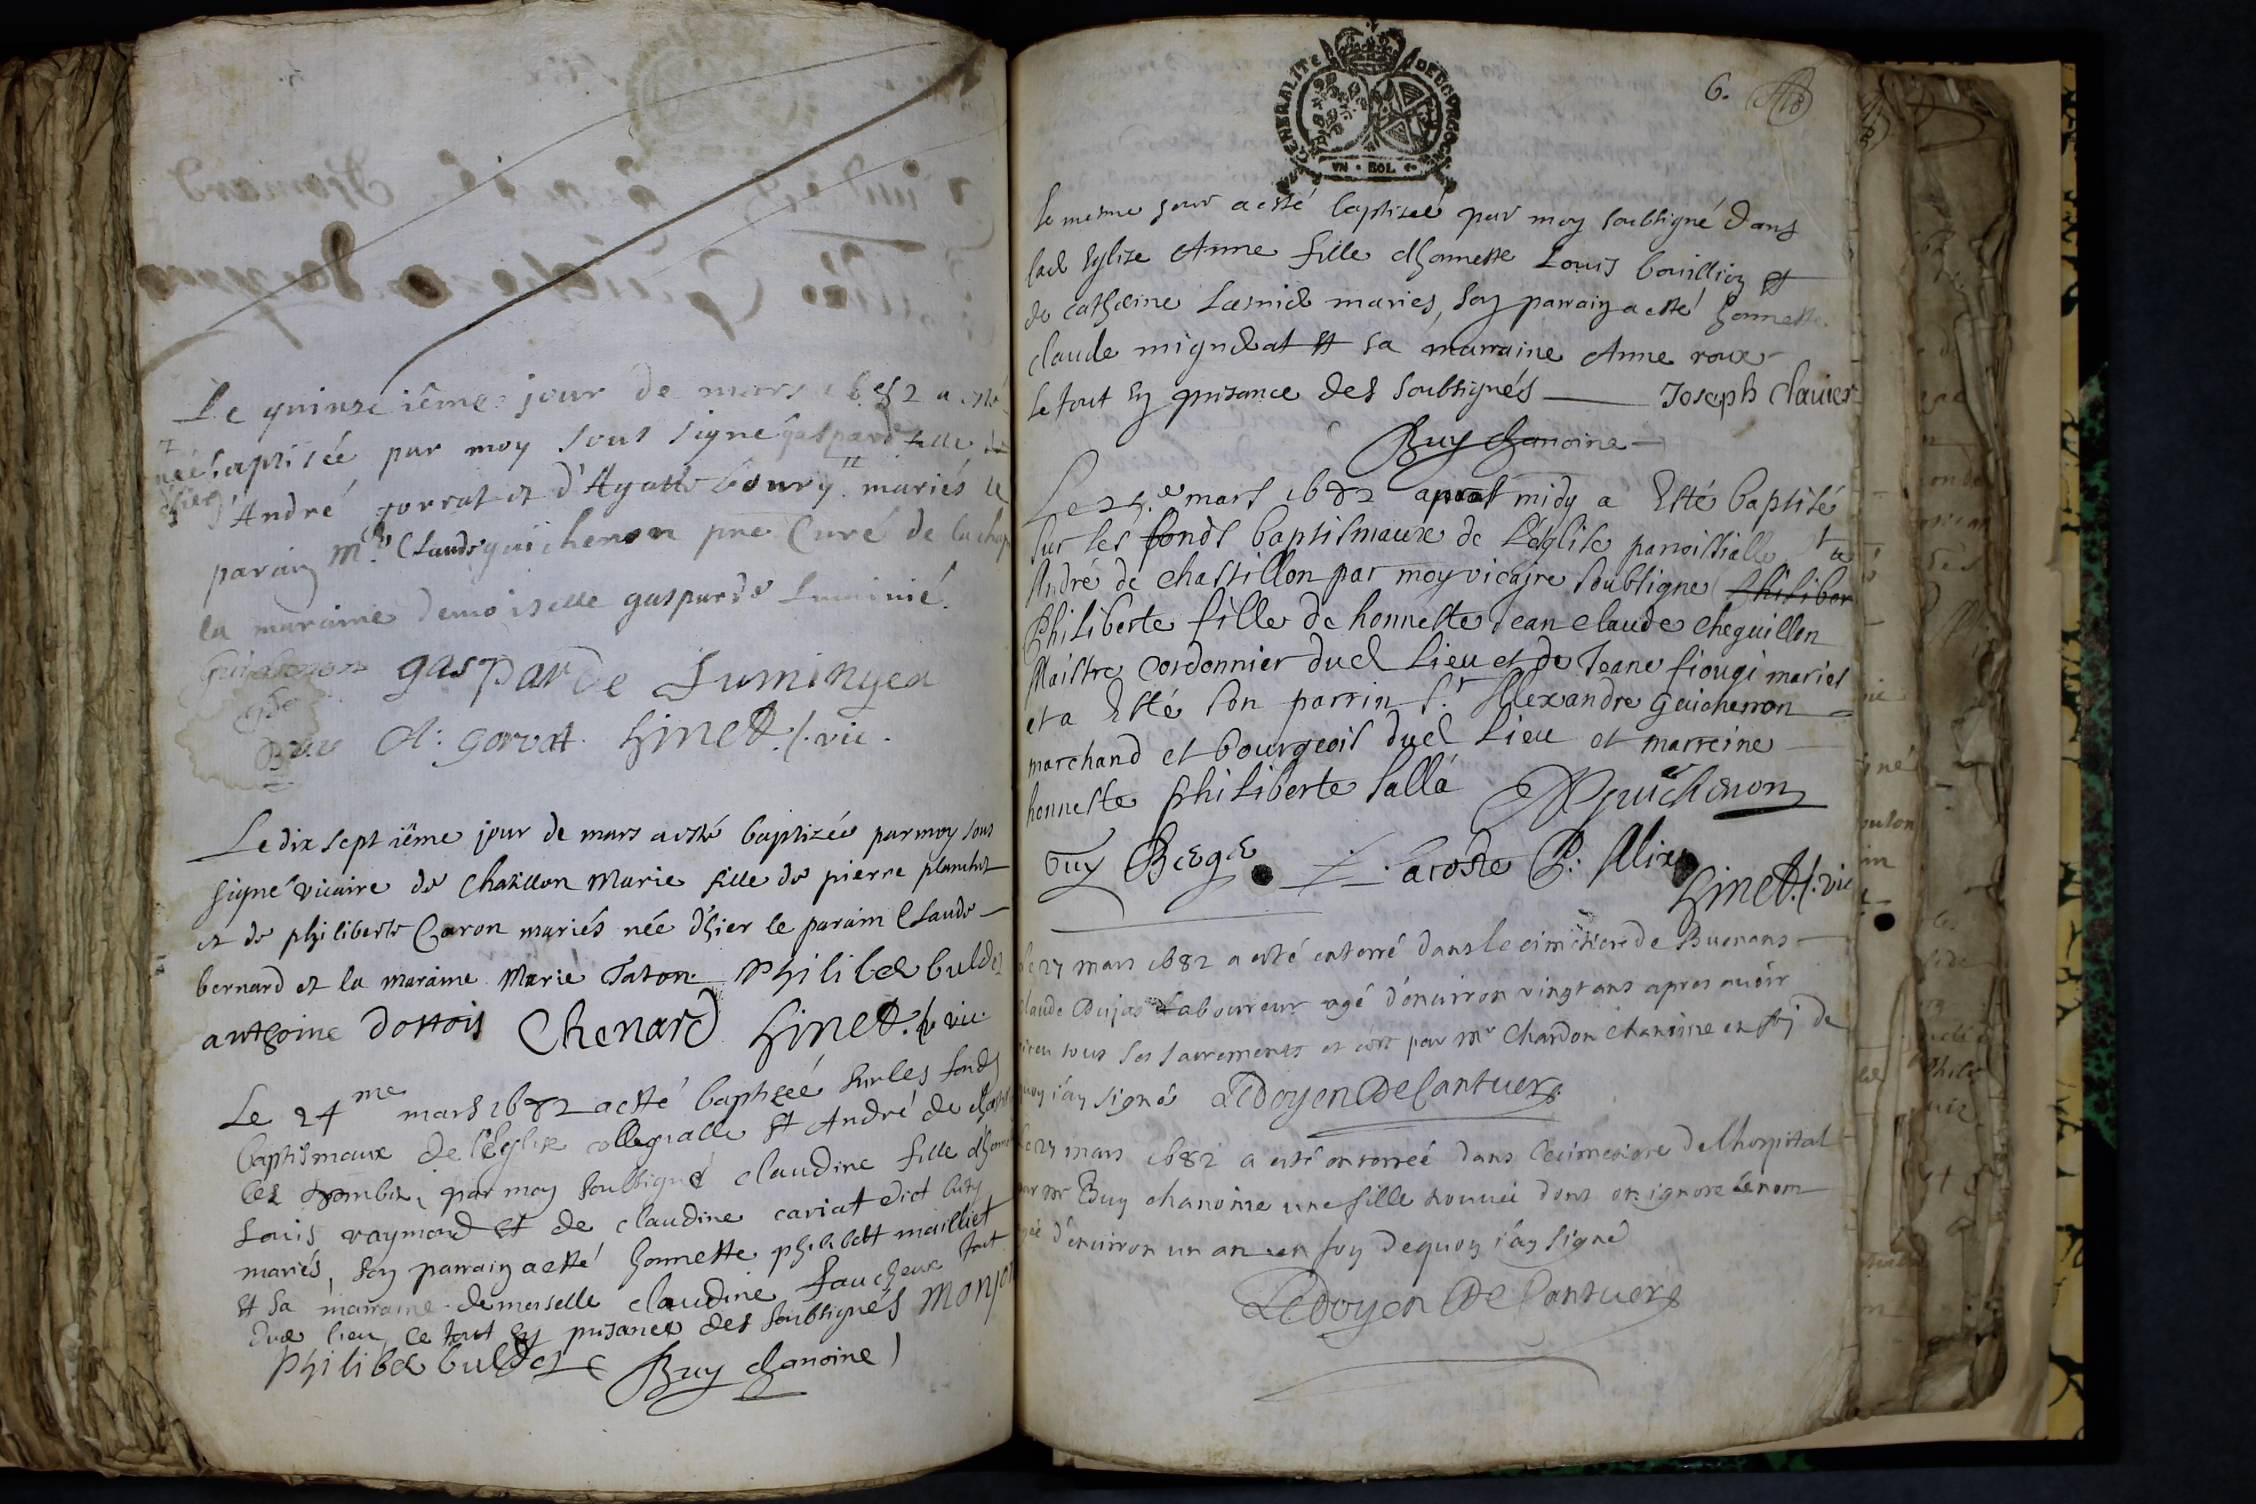 Le quinze ième jour de mars 1682 a esté
née baptisée par moy sous signé gaspard fille de
d'hier d'André gorrat et d'Agathe boury mariés le
parain Mre Claude guichenon pre Curé de la chap
la maraine demoiselle gasparde Luminié.
Guichenon gasparde Luminyer
Buy A: gorvat Hinet /. vic.
Le dix sept ième jour de mars a esté baptizée par moy sous
signé vicaire de Chatillon Marie fille de pierre planchet
et de philiberte Caron mariés née d'hier le parain Claude
bernard et la maraine Marie Taton Philibert buldet
anthoine dottois Chenard Hinet. /. vic.
Le 24me mars 1682 a esté baptizéé sur les fonds
baptismaux de l'Eglise collegialle St André de chast
lez dombes, par moy soubsigné claudine fille d'honn
Louis raymond et de claudine cariat dict
mariés, son parrain a esté honneste philibert mailliet
et sa marraine demoiselle claudine faucheux
dud lieu le tout en presance des soubsignés Monjon
Philibert buldet Buy chanoine
6.
GENERALITE DE BOURGOGNE
VN • SOL
le mesme jour a esté baptizeé par moy soubsigné dans
lad Eglize Anne fille d'honneste Louis bouillion et
de catherine Lasnied mariés, son parrain a esté honneste
claude mignerat et sa marraine Anne roux
le tout en presance des soubsignés Joseph Clavier
Buy chanoine
Le 25.e mars 1682 apres midy a Esté baptisé
sur les fonds baptismaux de L'eglise parroissialle St
André de chastillon par moy vicaire soubsigne Philiber
Philiberte fille de honneste Jean claude cheguillon
Maistre cordonnier dud Lieu et de Jeane fiougi mariés
et a Esté son parrin Sr. Allexandre Guichenon
marchand et bourgeois dud Lieu et marreine
honneste philiberte Salla AGuichenon
buy Berge Lacoste P: Alix
Hinet. /. vic
le 27 mars 1682 a esté enterré dans le cimetiere de Buenans
claude Dujas Laboureur agé d'environ vingt ans apres avoir
receu tous ses sacrements et ce par Mr Chardon chanoine en foy de
quoy j'ay signé Ledoyen De Cantuers
le 27 mars 1682 a esté enterreé dans le cimetiere de l'hospital
par Mr Buy chanoine une fille trouvée dont on ignore le nom
agée d'environ un an en foy de quoy j'ay signé
Ledoyen De Cantuers